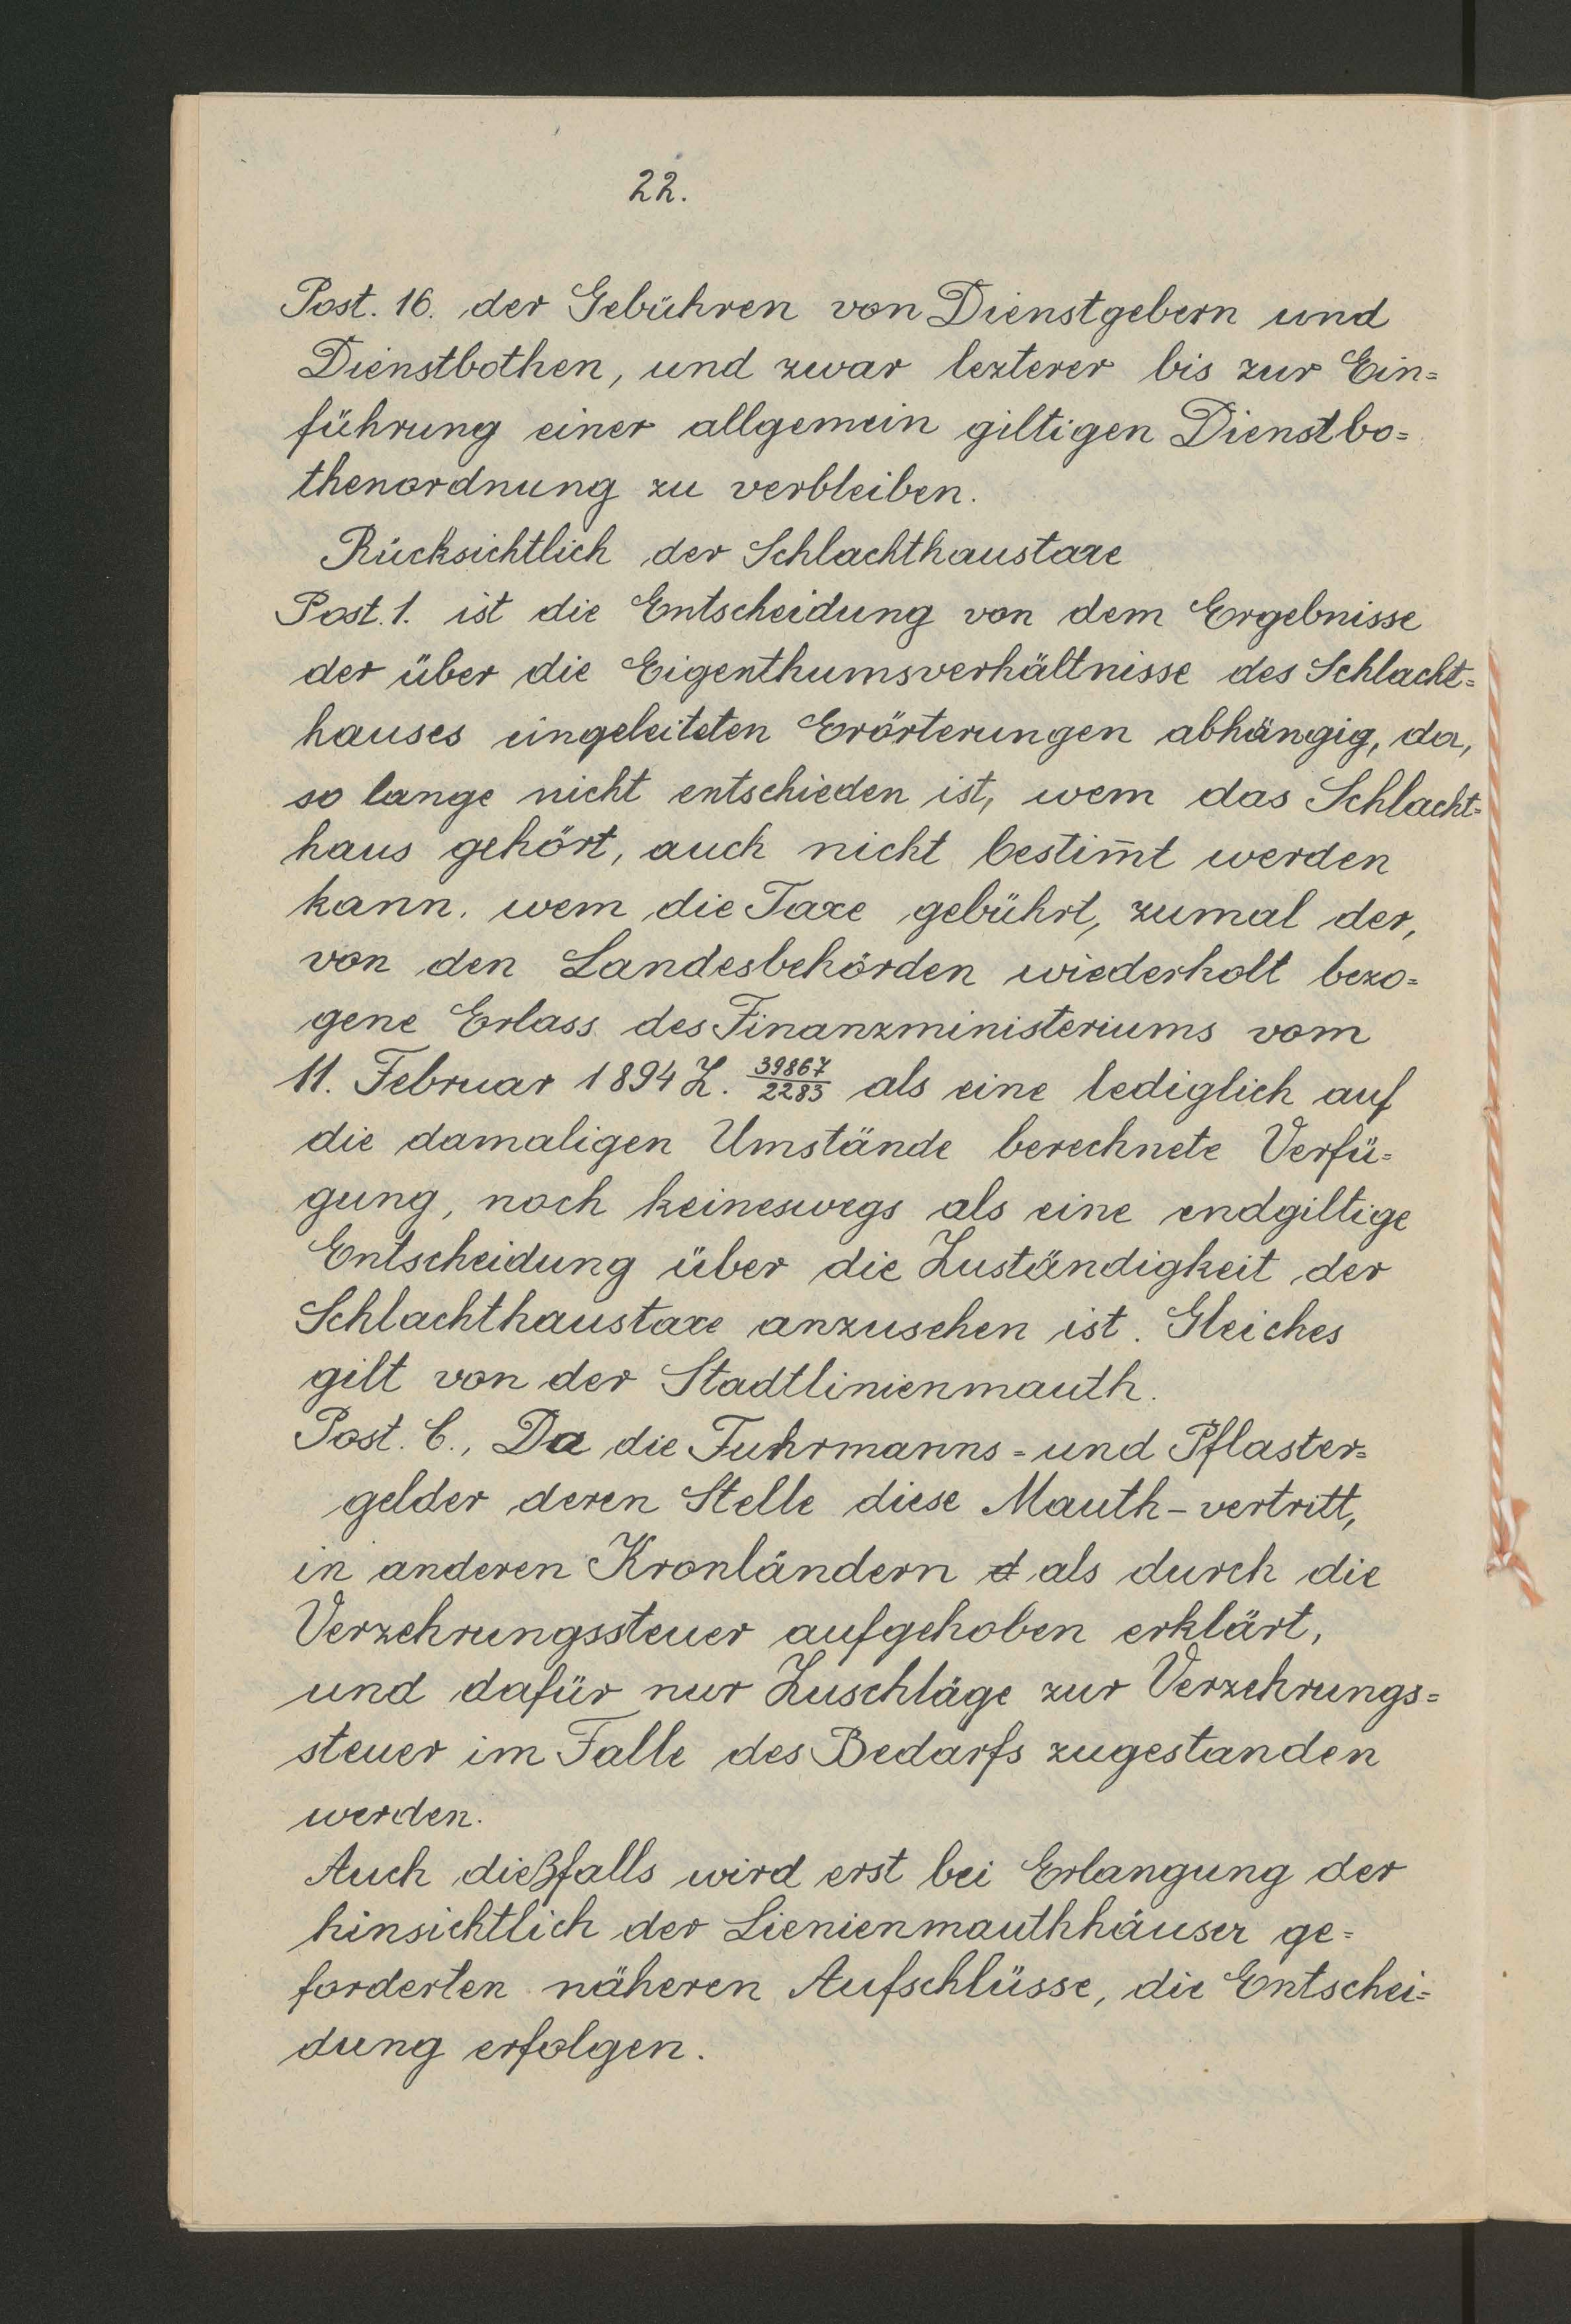 22.
Post. 16. der Gebühren von Dienstgebern und
Dienstbothen, und zwar lezterer bis zur Ein=
führung einer allgemein giltigen Dienstbo=
thenordnung zu verbleiben.
Rücksichtlich der Schlachthaustaxe
Post. 1. ist die Entscheidung von dem Ergebnisse
der über die Eigenthumsverhältnisse des Schlacht=
hauses eingeleiteten Erörterungen abhängig, da,
so lange nicht entschieden ist, wem das Schlacht=
haus gehört, auch nicht bestim̅t werden
kann, wem die Taxe gebührt, zumal der,
von den Landesbehörden wiederholt bezo=
gene Erlass des Finanzministeriums vom
11. Februar 1894 Z. 39867/2283 als eine lediglich auf
die damaligen Umstände berechnete Verfü=
gung, noch keineswegs als eine endgiltige
Entscheidung über die Zuständigkeit der
Schlachthaustaxe anzusehen ist. Gleiches
gilt von der Stadtlinienmauth.
Post. C., Da die Fuhrmanns=und Pflaster=
gelder deren Stelle diese Mauth-vertritt,
in anderen Kronländern d als durch die
Verzehrungssteuer aufgehoben erklärt,
und dafür nur Zuschläge zur Verzehrungs=
steuer im Falle des Bedarfs zugestanden
werden.
Auch dießfalls wird erst bei Erlangung der
hinsichtlich der Lienienmauthhäuser ge=
forderten näheren Aufschlüsse, die Entschei=
dung erfolgen.